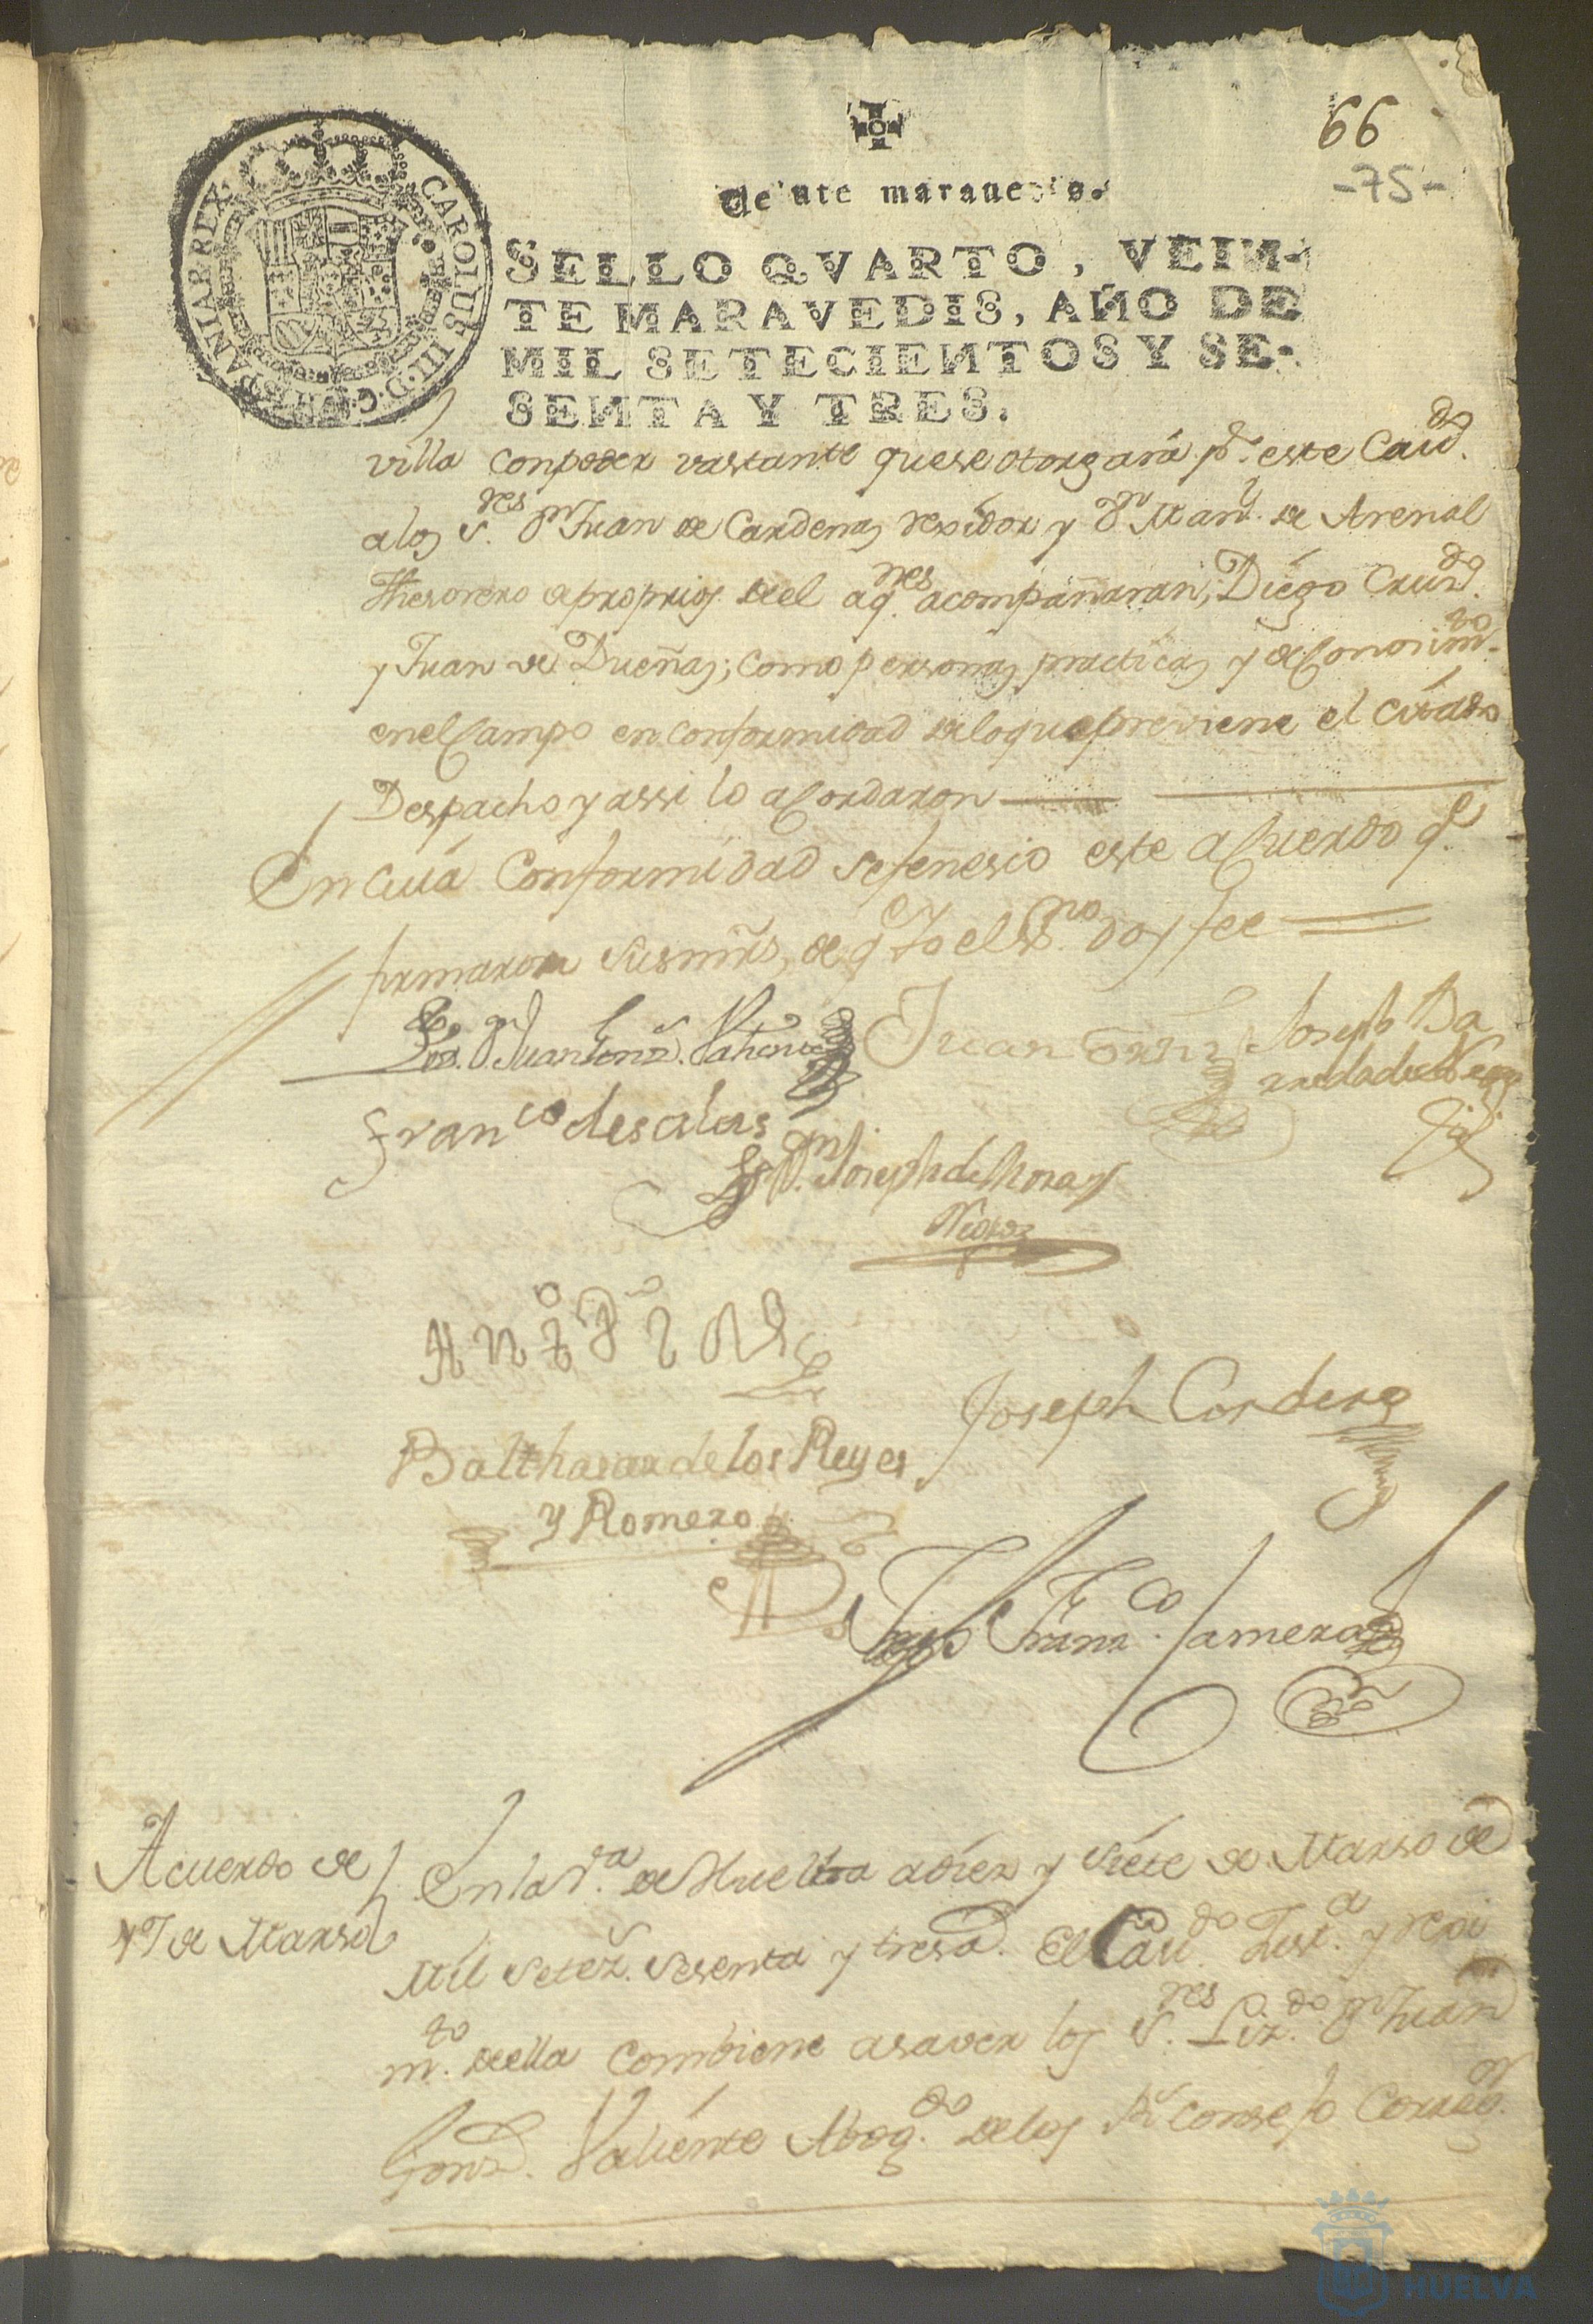 66
-75-
CAROLUS III D.G. HISPANIAR REX
Veinte maravedis.
SELLO QVARTO, VEIN-
TE MARAVEDIS, AÑO DE
MIL SETECIENTOS Y SE-
SENTA Y TRES.
villa con poder vastante que se otorgará pr. este Cavdo.
a los Sres. Dn Juan de Cardenas rexidor y Dn Manl. de Arenal
Thesorero a proprios de el a qnes acompañaran, Diego Cruzdo.
y Juan de Dueñas; como personas practicas y de Conosimto.
en el Campo en conformidad de lo que previene el citado
Despacho y assi lo acordaron
En cuia Conformidad se fenesio este acuerdo qe.
firmaron sus mrds, de qe Yo el Esno. doy fee
Lizdo. Dn Juan Gonz. Valiente
Juan
Joseph Ba
Franco de salas
Dn. Joseph de Mora y
Negro
Joseph Cordero
Balthasar de los Reyes
y Romero
Joseph Franco. Camera
Acuerdo de
17 de Marso
En la Va. de Huelva a diez y siete de Marso de
Mil setez. sesenta y tres a. El Cavdo. Justa. y rexi
mto. de ella combiene a saver los Sres. Lizdo. Dn Juan
Gonz. Valiente Abogdo. de los Rs. Consejos Corregor.
HUELVA